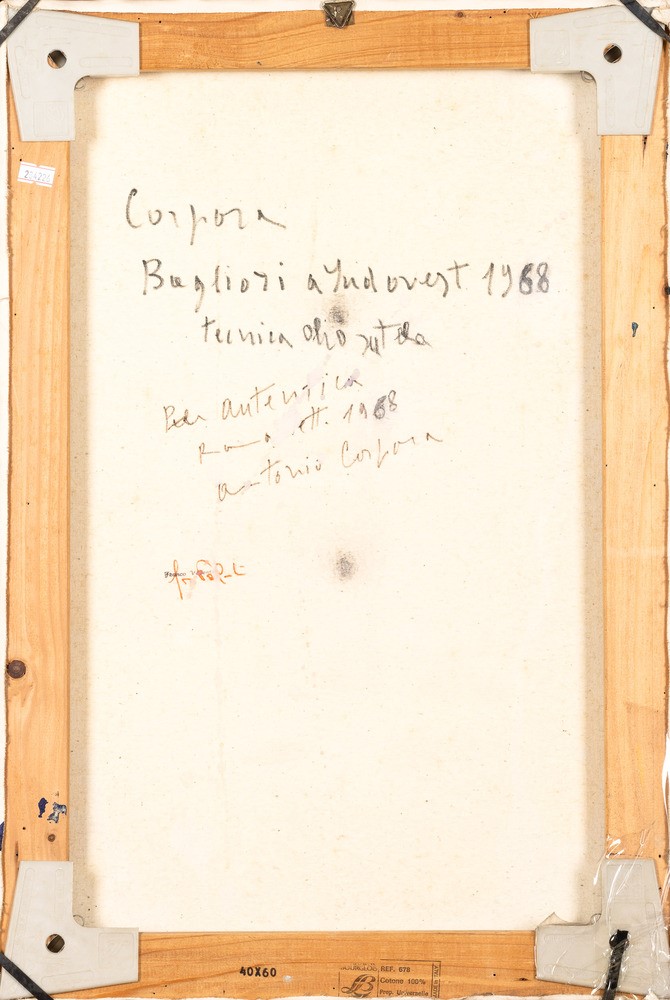 204226
Corpora
Bagliori a Sudovest 1968
tecnica olio su tela
Per autentica
Roma ott. 1968
Antonio Corpora
40X60
REF. 678
Cotone 100%
Prep. Universelle
MADE IN ITALY